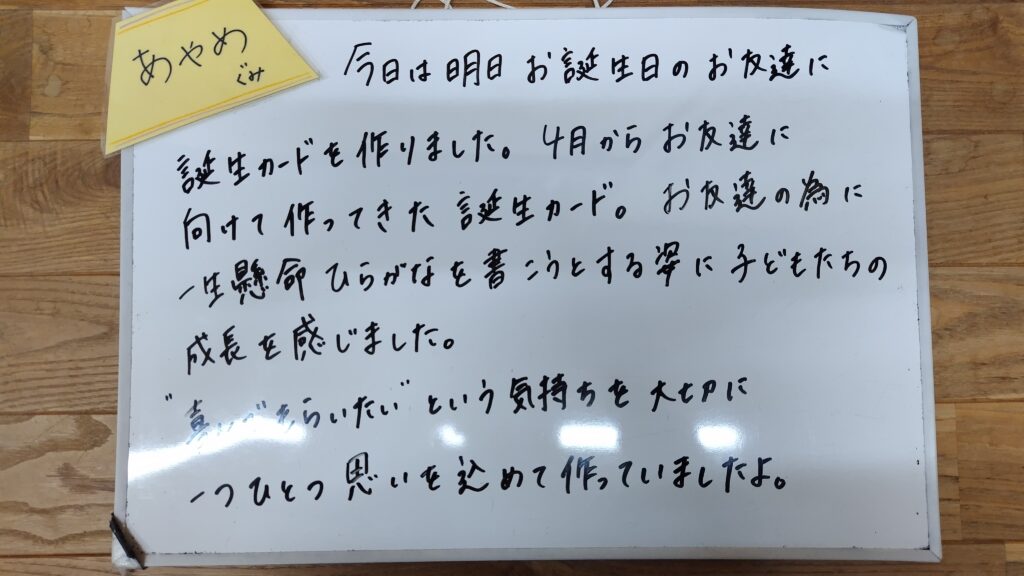 あやめ
ぐみ
今日は明日お誕生日のお友達に
誕生カードを作りました。4月からお友達に
向けて作ってきた誕生カード。お友達の為に
一生懸命ひらがなを書こうとする姿に子どもたちの
成長を感じました。
"喜んでもらいたい"という気持ちを大切に
一つひとつ思いを込めて作っていましたよ。